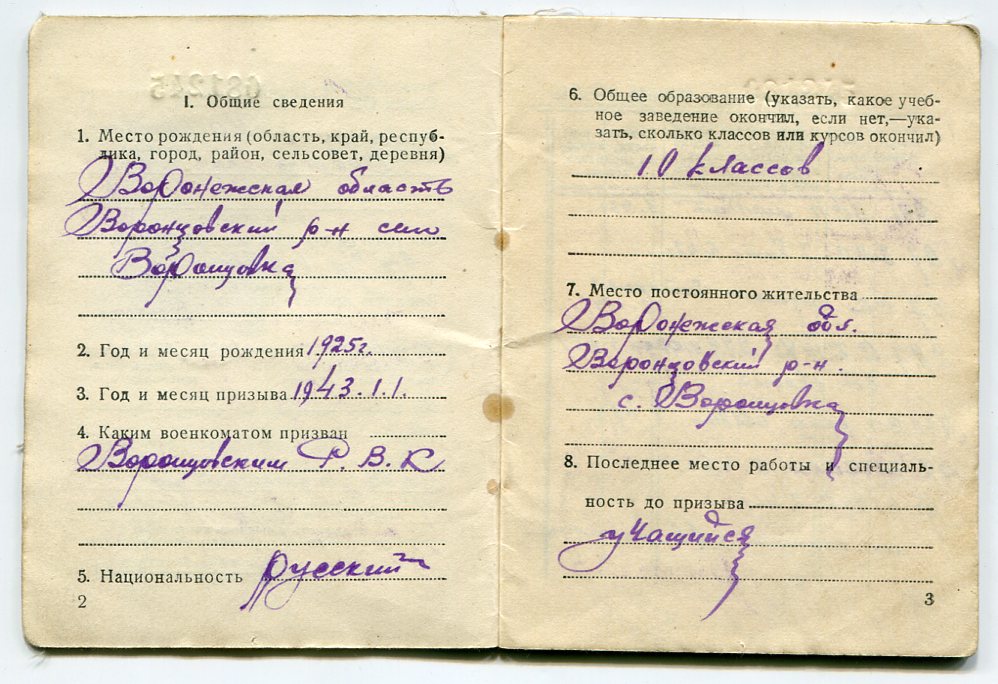 I. Общие сведения
1. Место рождения (область, край, респуб-
лика, город, район, сельсовет, деревня)
Воронежская область
Воронцовский р-н село
Воронцовка
2. Год и месяц рождения 1925г.
3. Год и месяц призыва 1943.1.1.
4. Каким военкоматом призван
Воронцовским Р.В.К
5. Национальность русский
2
6. Общее образование (указать, какое учеб-
ное заведение окончил, если нет,—ука-
зать, сколько классов или курсов окончил)
10 классов
7. Место постоянного жительства
Воронежская обл.
Воронцовский р-н.
с. Воронцовка
8. Последнее место работы и специаль-
ность до призыва
учащийся
3